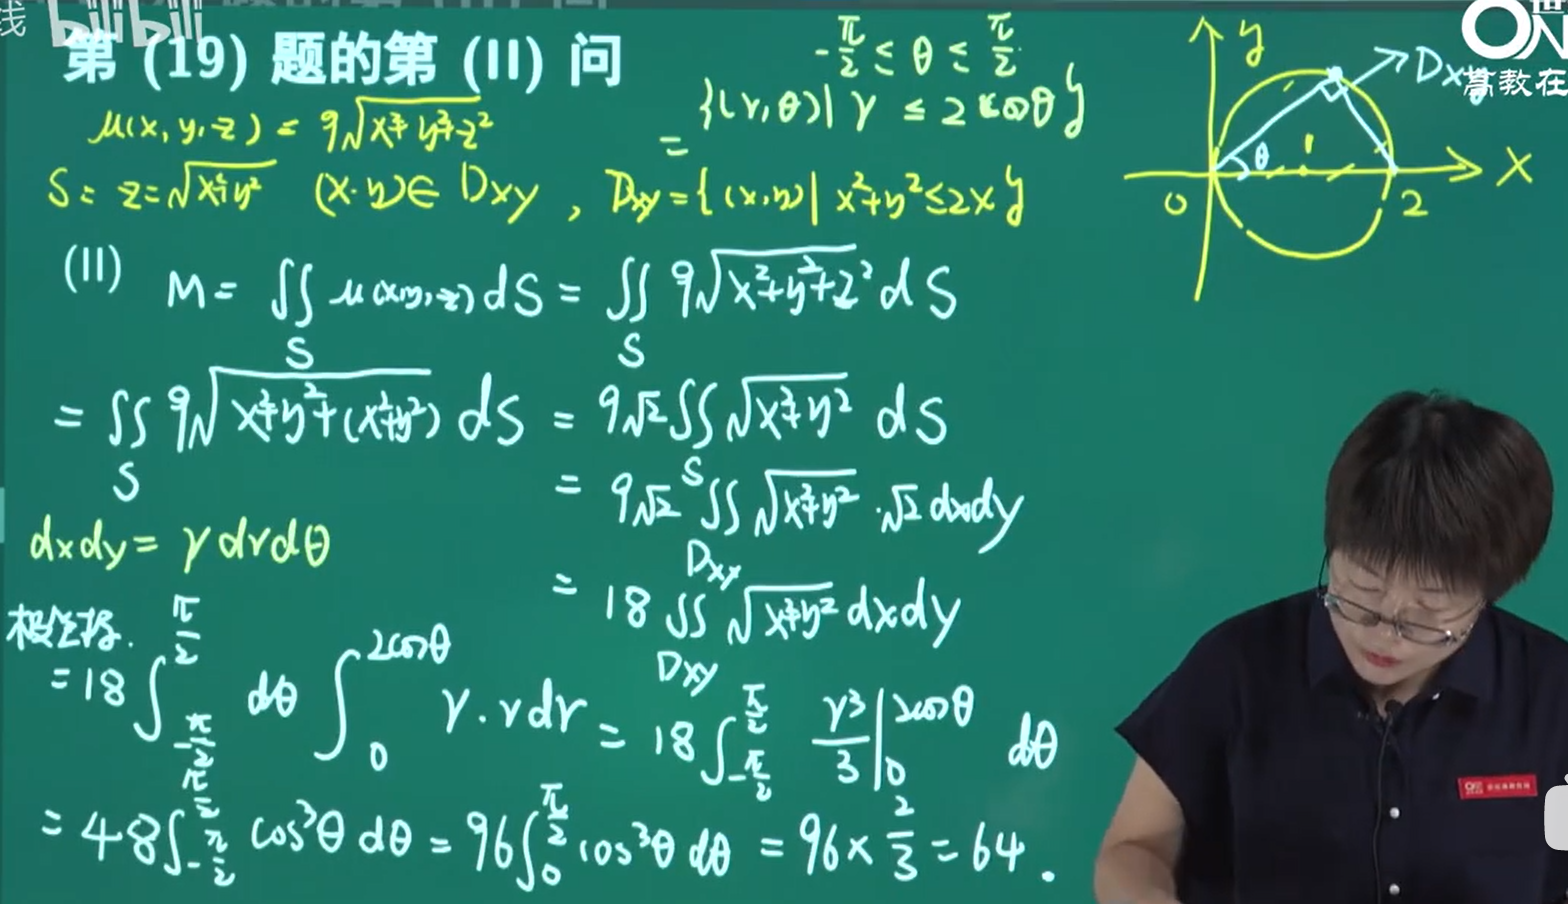 线 bilibili
第 (19) 题的第 (II) 问
μ(x,y,z) = 9√(x²+y²+z²)
-π/2 ≤ θ ≤ π/2
= {(r,θ)| r ≤ 2cosθ}
S: z=√(x²+y²) (x·y)∈ Dxy , Dxy={(x,y)| x²+y²≤2x}
y
Dxy
θ
1
X
0
2
高教在
(II) M= ∬_S μ(x,y,z) dS = ∬_S 9√(x²+y²+z²) dS
= ∬_S 9√(x²+y²+(x²+y²)) dS = 9√2 ∬_S √(x²+y²) dS
= 9√2 ∬_Dxy √(x²+y²) ·√2 dxdy
dxdy= r dr dθ
= 18 ∬_Dxy √(x²+y²) dxdy
极坐标.
=18 ∫_{-π/2}^{π/2} dθ ∫_0^{2cosθ} r·r dr = 18 ∫_{-π/2}^{π/2} r³/3 |_0^{2cosθ} dθ
= 48 ∫_{-π/2}^{π/2} cos³θ dθ = 96 ∫_0^{π/2} cos³θ dθ = 96× 2/3 = 64 .